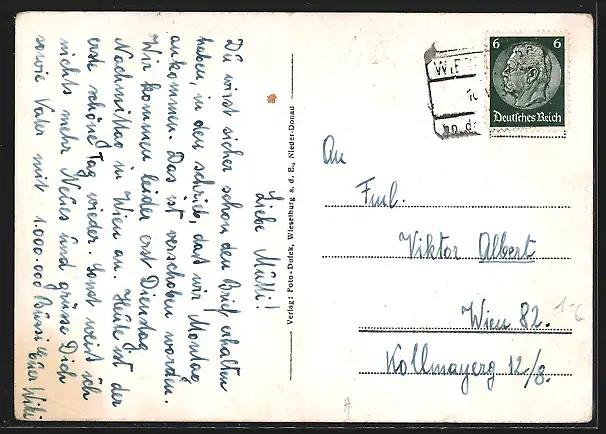 Liebe Mutti!
Du wirst sicher schon den Brief erhalten
haben, in den schrieb, daß wir Montag
ankommen. Das ist verschoben worden.
Wir kommen leider erst Dienstag
Nachmittag in Wien an. Heute ist der
erste schöne Tag wieder. Sonst weiß ich
nichts mehr Neues und grüße Dich
sowie Vater mit 1.000.000 Bussi Euer Wiki
Verlag: Foto-Dufek, Wieselburg a. d. E., Nieder-Donau
6 6
Deutsches Reich
An
Faml.
Viktor Albert
Wien 82.
Kollmayerg 12/8.